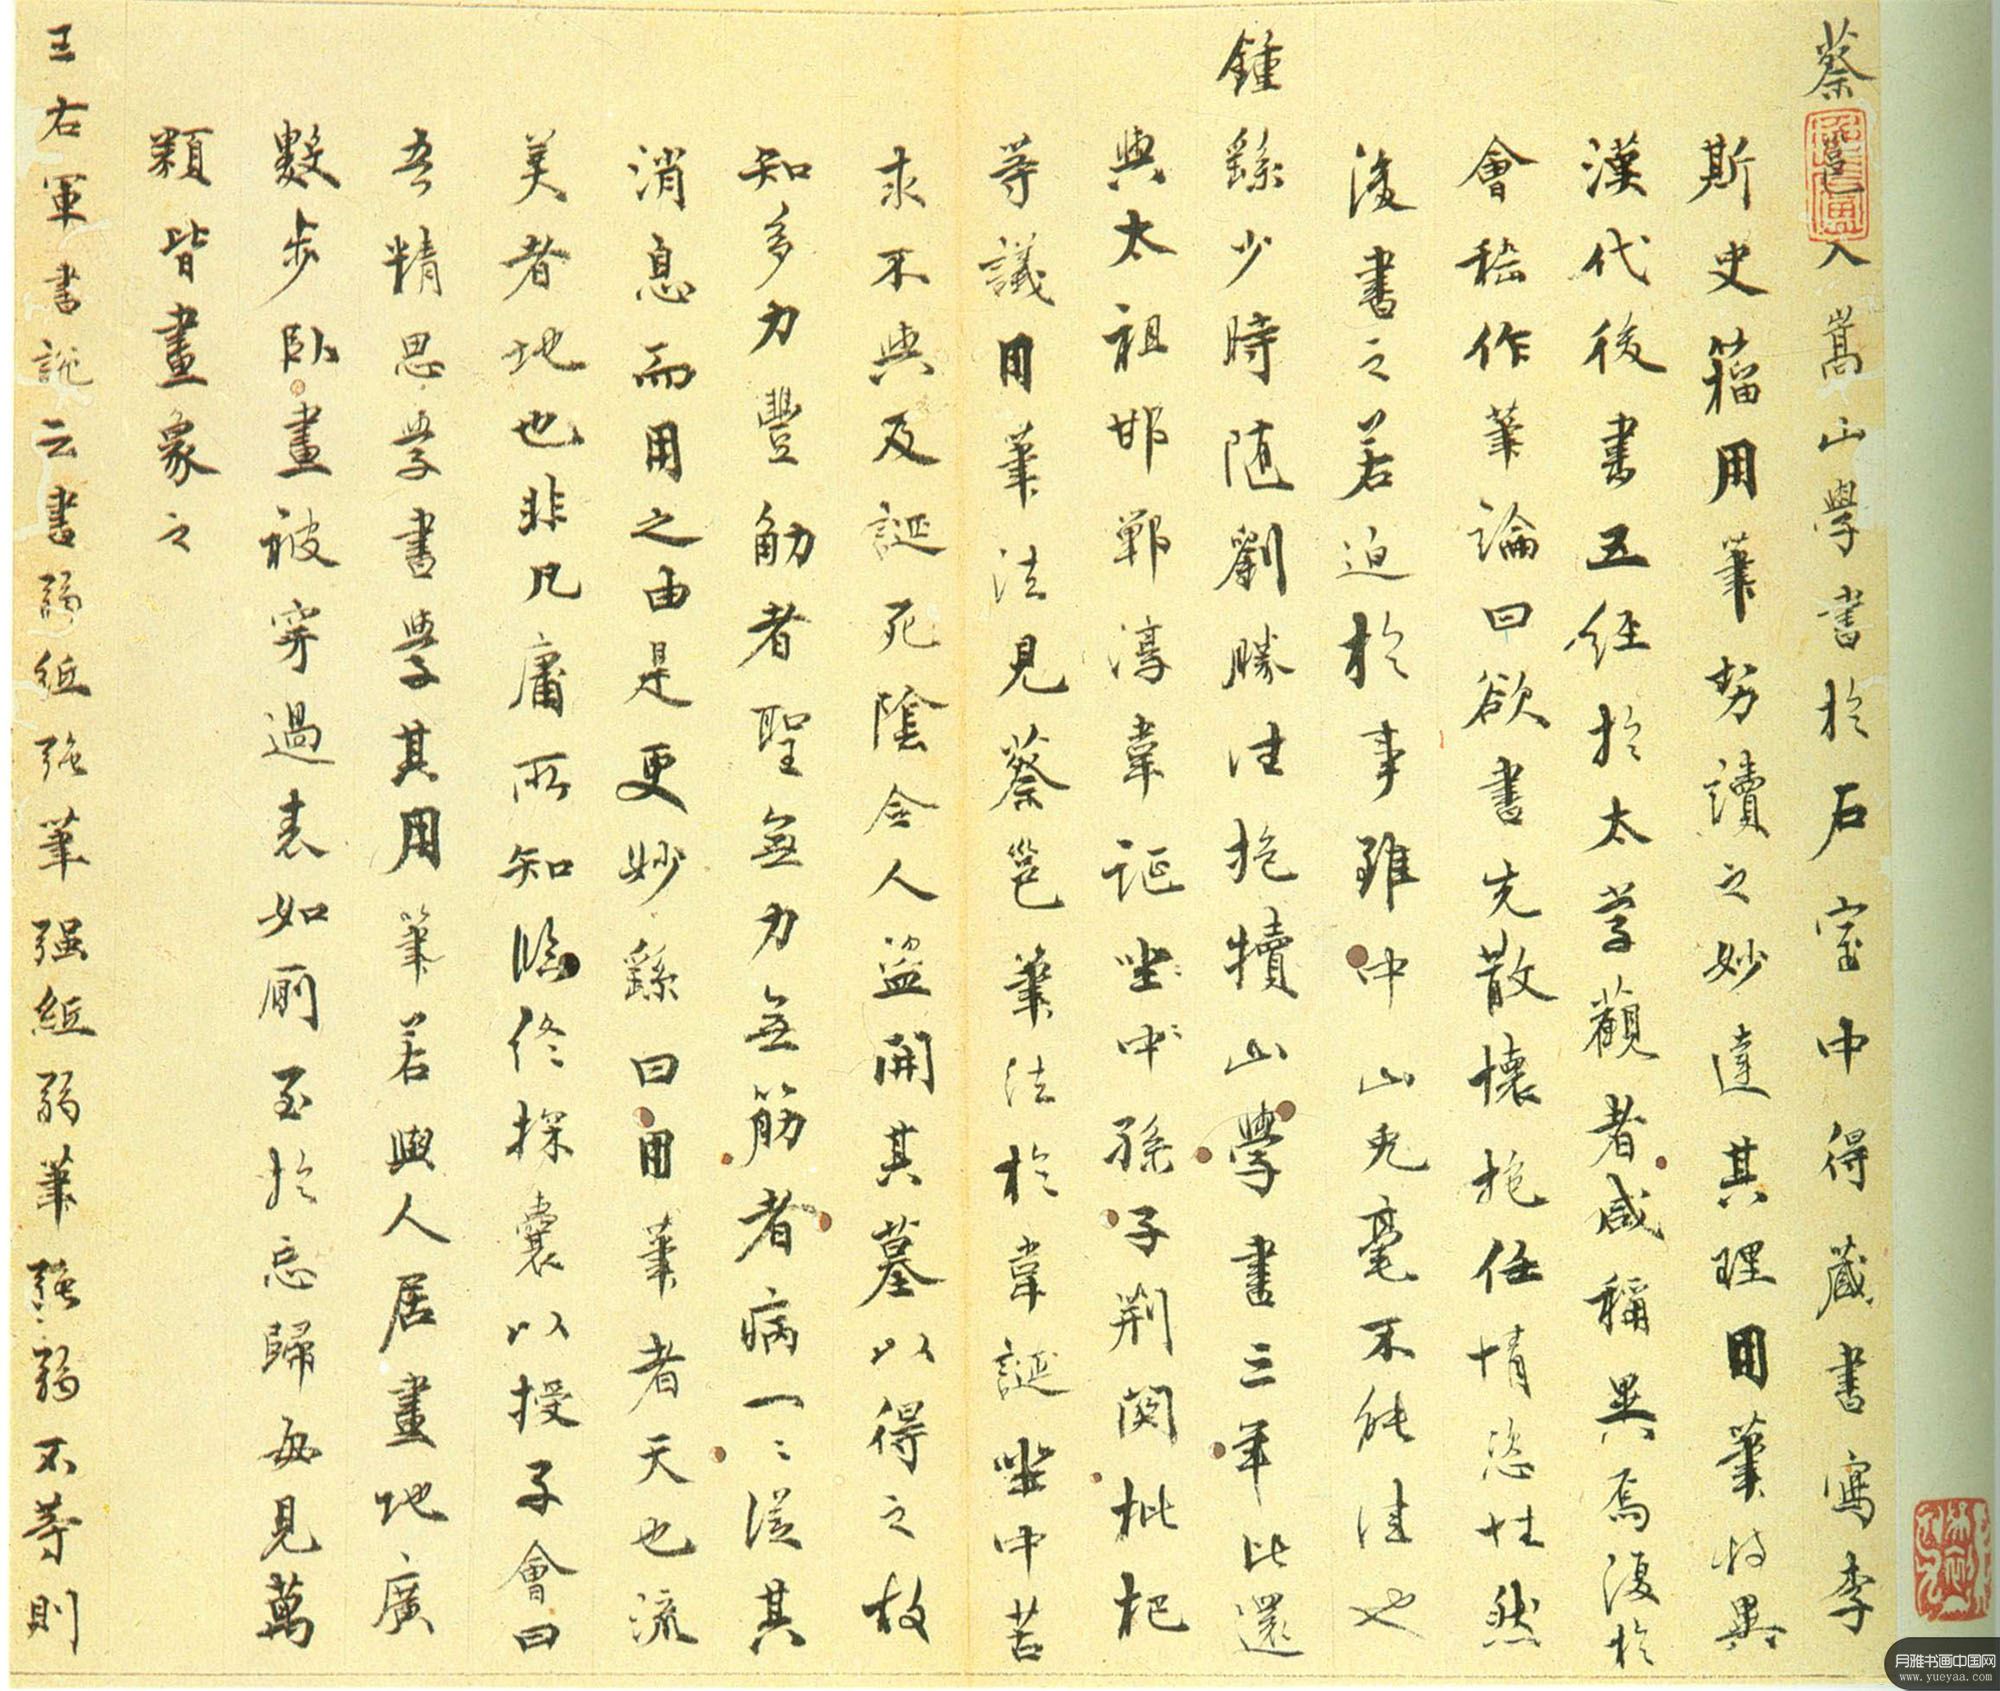 蔡邕入嵩山學書於石室中得藏書寫李
斯史籀用筆勢讀之妙達其理用筆特異
漢代後書五經於太學觀者咸稱異焉復於
會稽作筆論曰欲書先散懷抱任情恣性然
後書之若迫於事雖中山兔毫不能佳也
鍾繇少時随劉勝往抱犢山學書三年比還
與太祖邯鄲淳韋誕坐中孫子荆関枇杷
等議用筆法見蔡邕筆法於韋誕坐中苦
求不與及誕死陰令人盗開其墓以得之故
知多力豐觔者聖無力無筋者病一〻從其
消息而用之由是更妙繇曰用筆者天也流
美者地也非凡庸所知臨終探囊以授子會曰
吾精思學書學其用筆若與人居畫地廣
數步卧畫被穿過表如厠至於忘歸每見萬
類皆畫象之
王右軍書説云書弱紙强筆强紙弱筆强弱不等則
月雅书画中国网
www.yueyaa.com